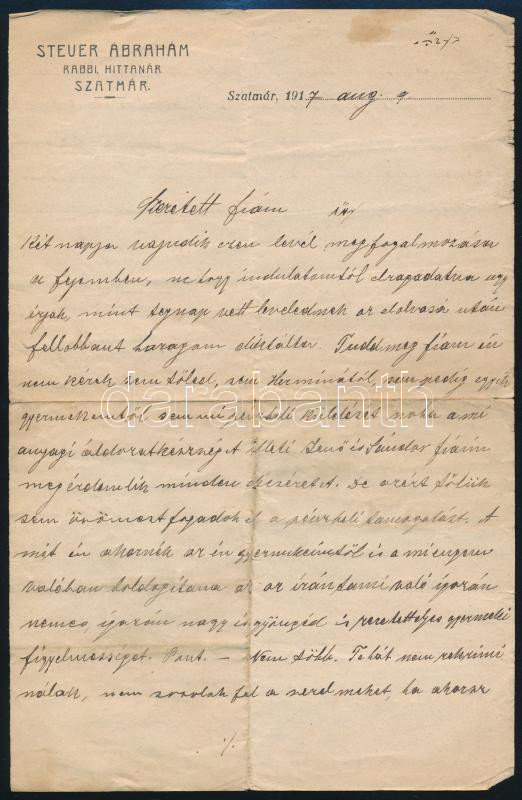 STEUER ÁBRAHÁM
RABBI, HITTANÁR
SZATMÁR.
Szatmár, 1917 aug. 9.
Szeretett fiam
Két napja vajudik ezen levél megfogalmazása
a fejemben, ne hogy indulatomtól elragadatva ugy
irjak, mint tegnap vett levelednek az elolvasása után
fellobbant haragom diktálta. Tudd meg fiam én
nem kérek sem tőled, sem Herminától, sem pedig egyik
gyermekemtől sem pénzbeli küldeményt noha ami
anyagi áldozatkészséget illeti Jenő és Sándor fiaim
megérdemlik minden dicséretet. De azért tőlük
sem örömest fogadok el a pénzbeli támogatást. A
mit én akarnék az én gyermekeimtől és a mi engem
valóban boldogitana az az irántami való igazán
nemes, igazán nagy és gyöngéd és szeretetteljes gyermeki
figyelmességet. Pont. — Nem több. Tehát nem rekrimi
nálok, nem sorolok fel a sérelmeket, ha akarsz
./.
darabanth